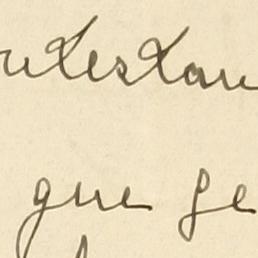 ntestan
que se